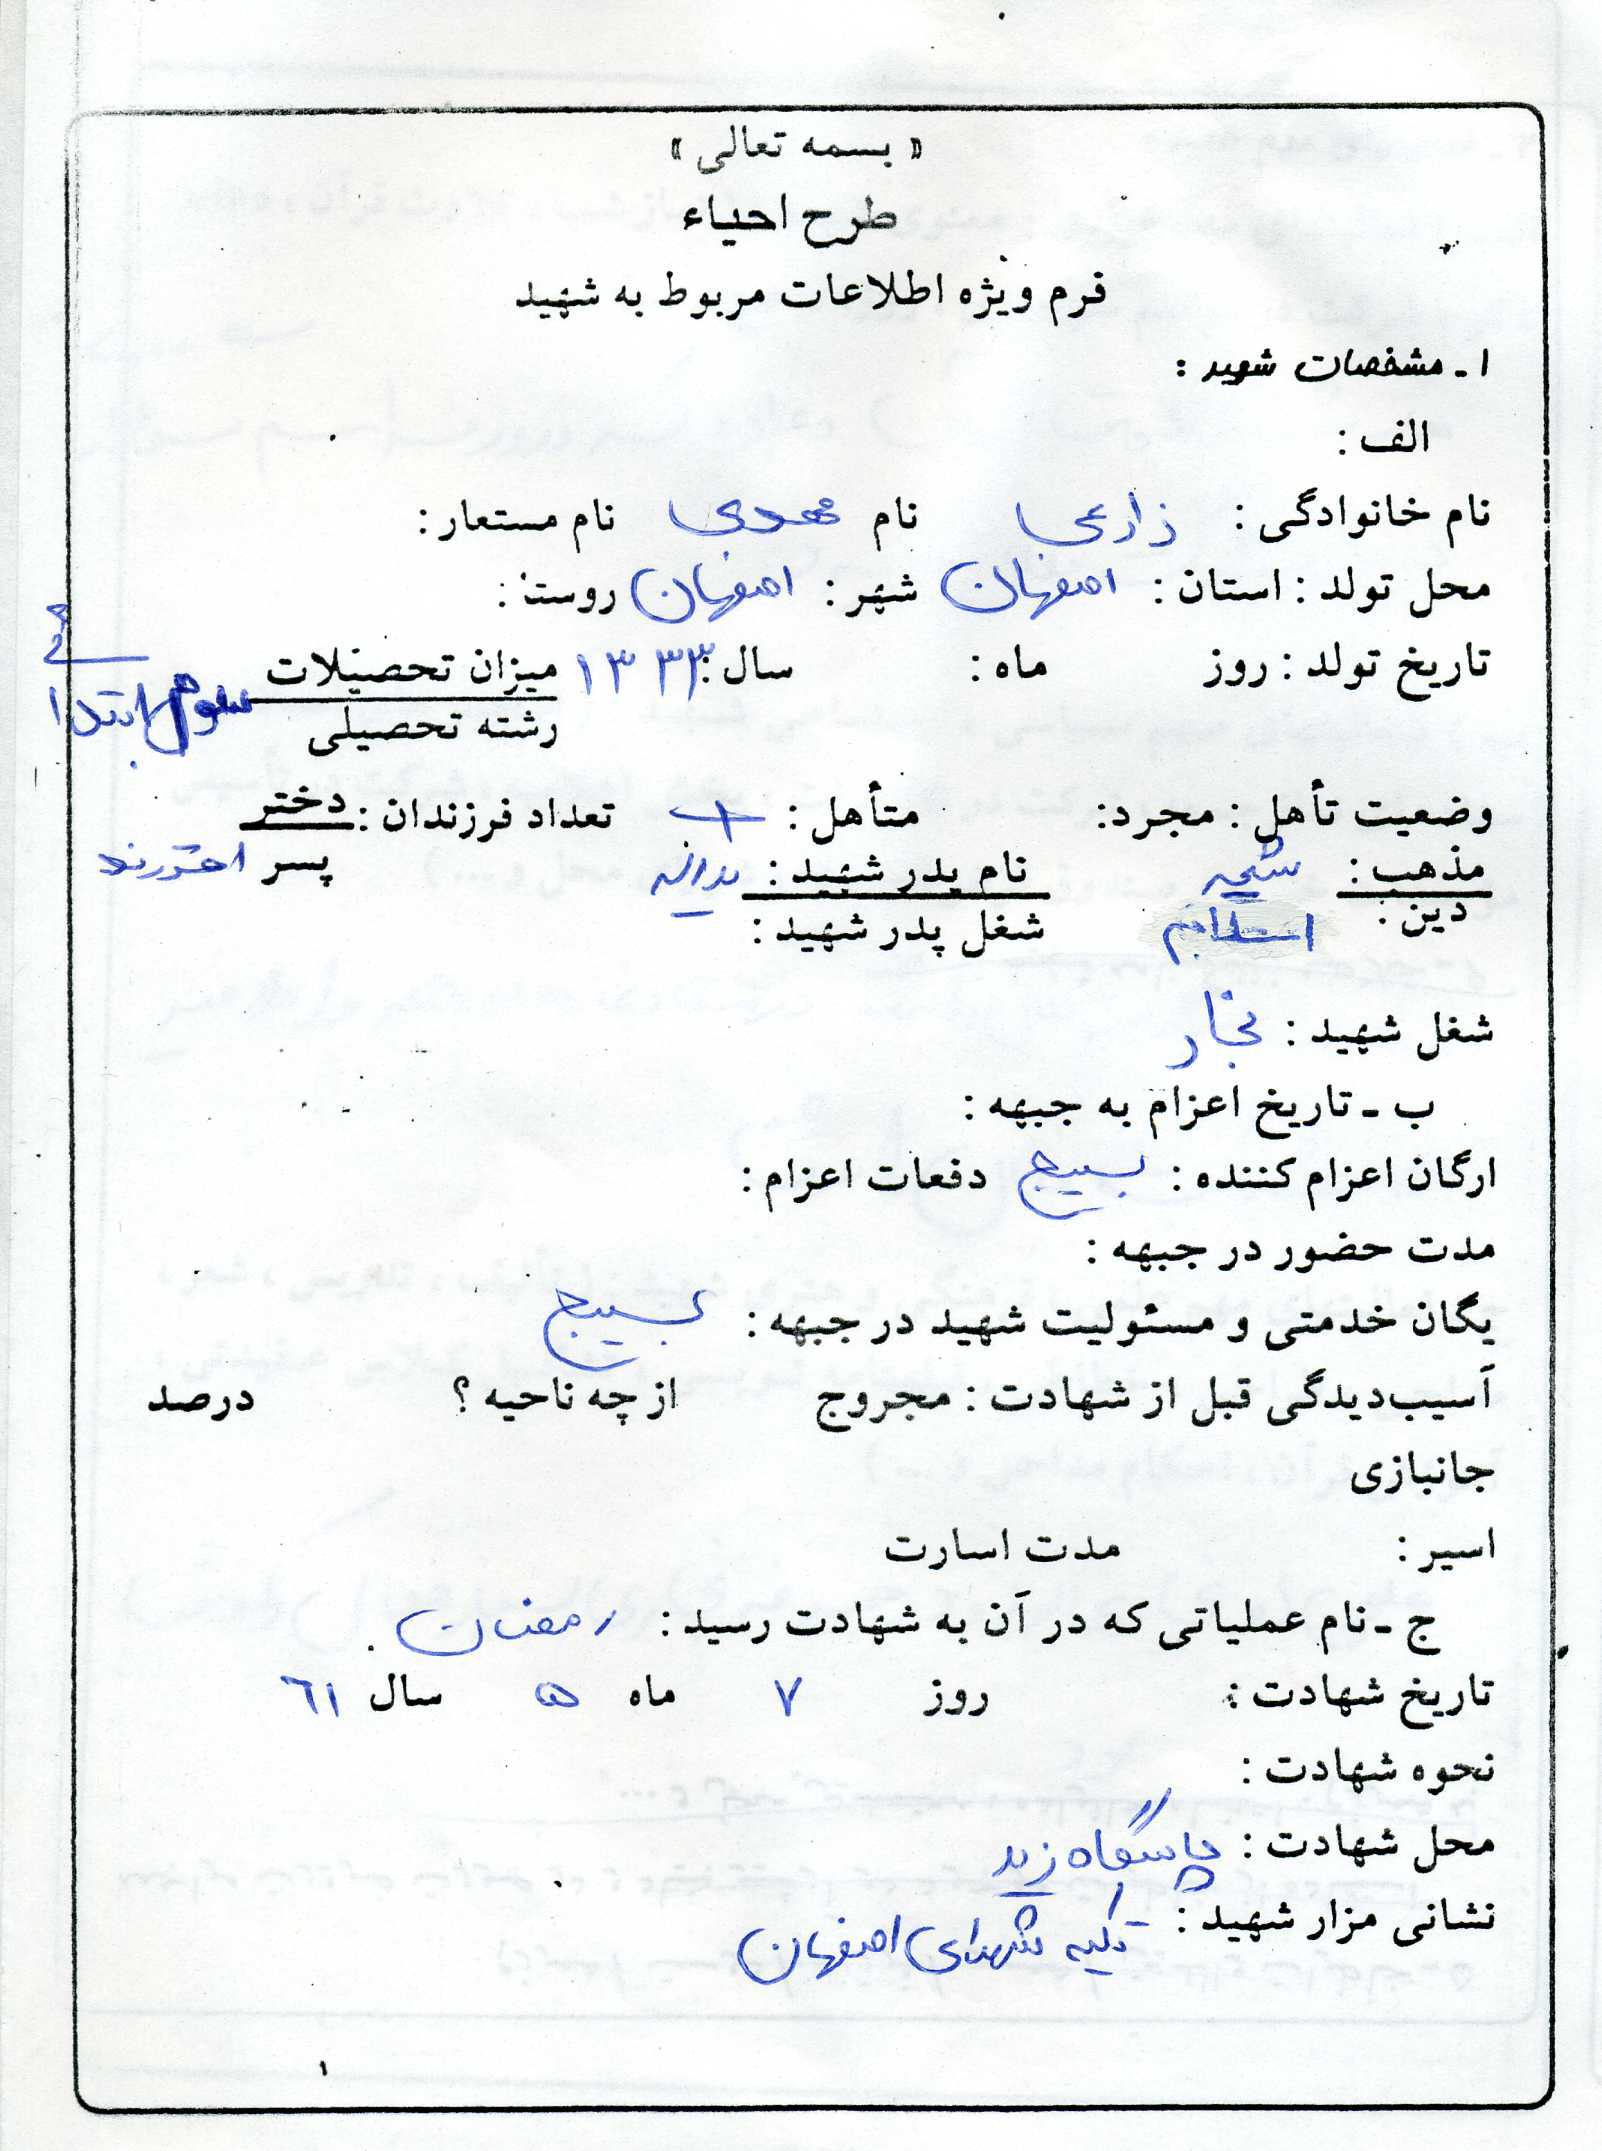 « بسمه تعالی »
طرح احیاء
فرم ویژه اطلاعات مربوط به شهید
۱ ـ مشخصات شهید :
الف :
نام خانوادگی : زارعی نام مهدی نام مستعار :
محل تولد : استان : اصفهان شهر : اصفهان روستا :
تاریخ تولد : روز ماه : سال : ۱۳۳۳ میزان تحصیلات
رشته تحصیلی سوم ابتدا
وضعیت تأهل : مجرد: متأهل : تعداد فرزندان : دختر
مذهب : شیعه نام پدر شهید : پسر ۱ فرزند
دین : اسلام شغل پدر شهید :
شغل شهید : نجار
ب ـ تاریخ اعزام به جبهه :
ارگان اعزام کننده : بسیج دفعات اعزام :
مدت حضور در جبهه :
یگان خدمتی و مسئولیت شهید در جبهه : بسیج
آسیب‌دیدگی قبل از شهادت : مجروج از چه ناحیه ؟ درصد
جانبازی
اسیر : مدت اسارت
ج ـ نام عملیاتی که در آن به شهادت رسید : رمضان
تاریخ شهادت : روز ۷ ماه ۵ سال ۶۱
نحوه شهادت :
محل شهادت : پاسگاه زید
نشانی مزار شهید : تکیه شهدای اصفهان
۱